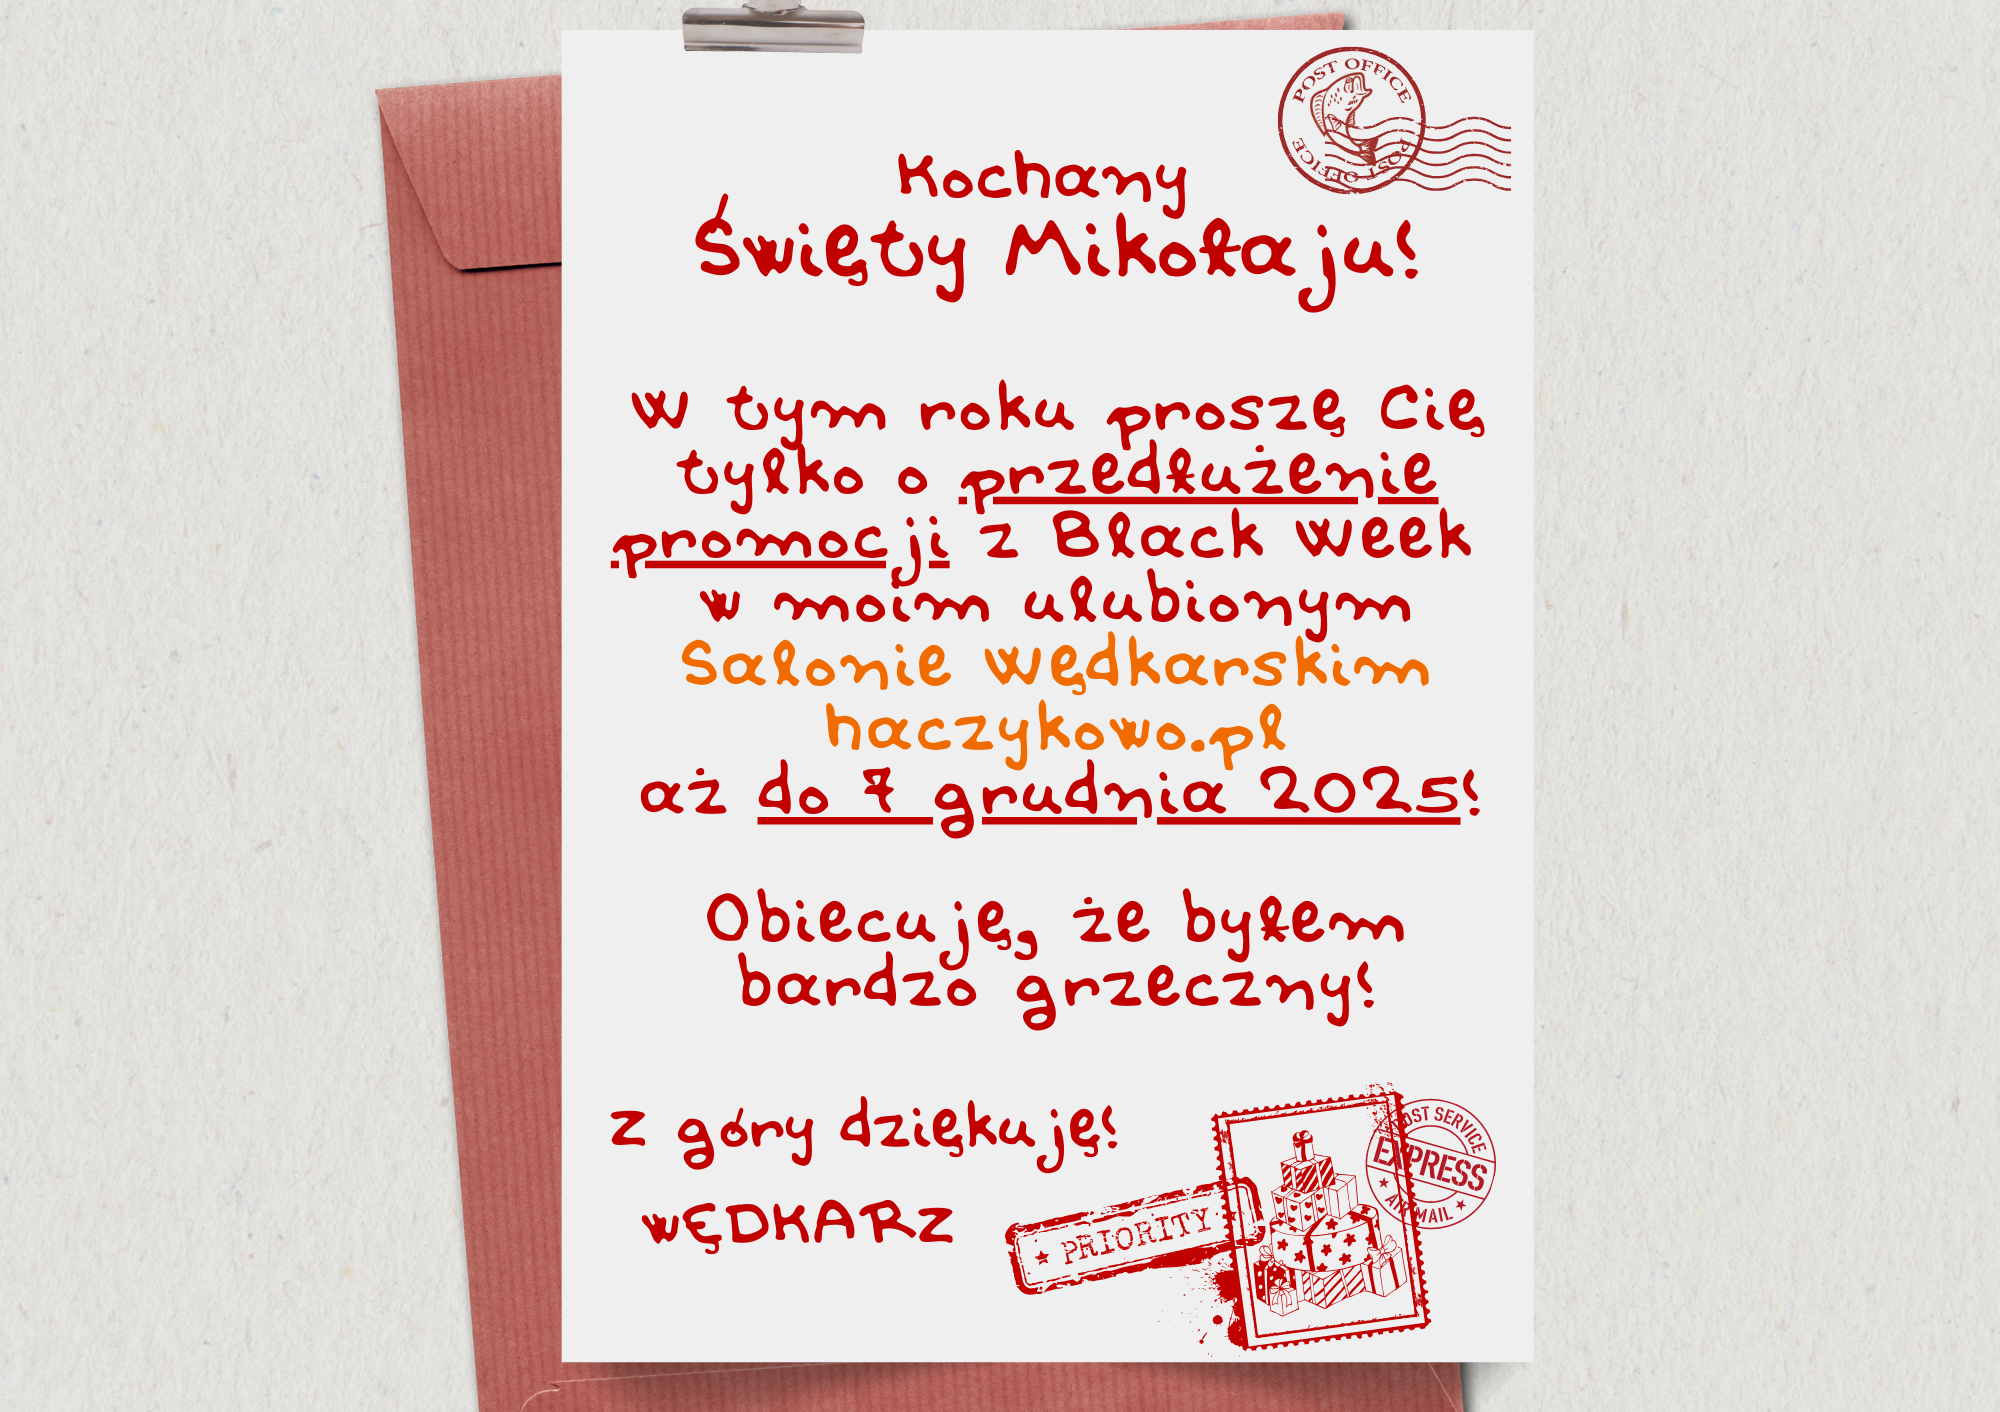 POST OFFICE
POST OFFICE
Kochany
Święty Mikołaju!
W tym roku proszę Cię
tylko o przedłużenie
promocji z Black Week
w moim ulubionym
Salonie Wędkarskim
haczykowo.pl
aż do 7 grudnia 2025!
Obiecuję, że byłem
bardzo grzeczny!
Z góry dziękuję!
WĘDKARZ
PRIORITY
POST SERVICE
EXPRESS
AIR MAIL